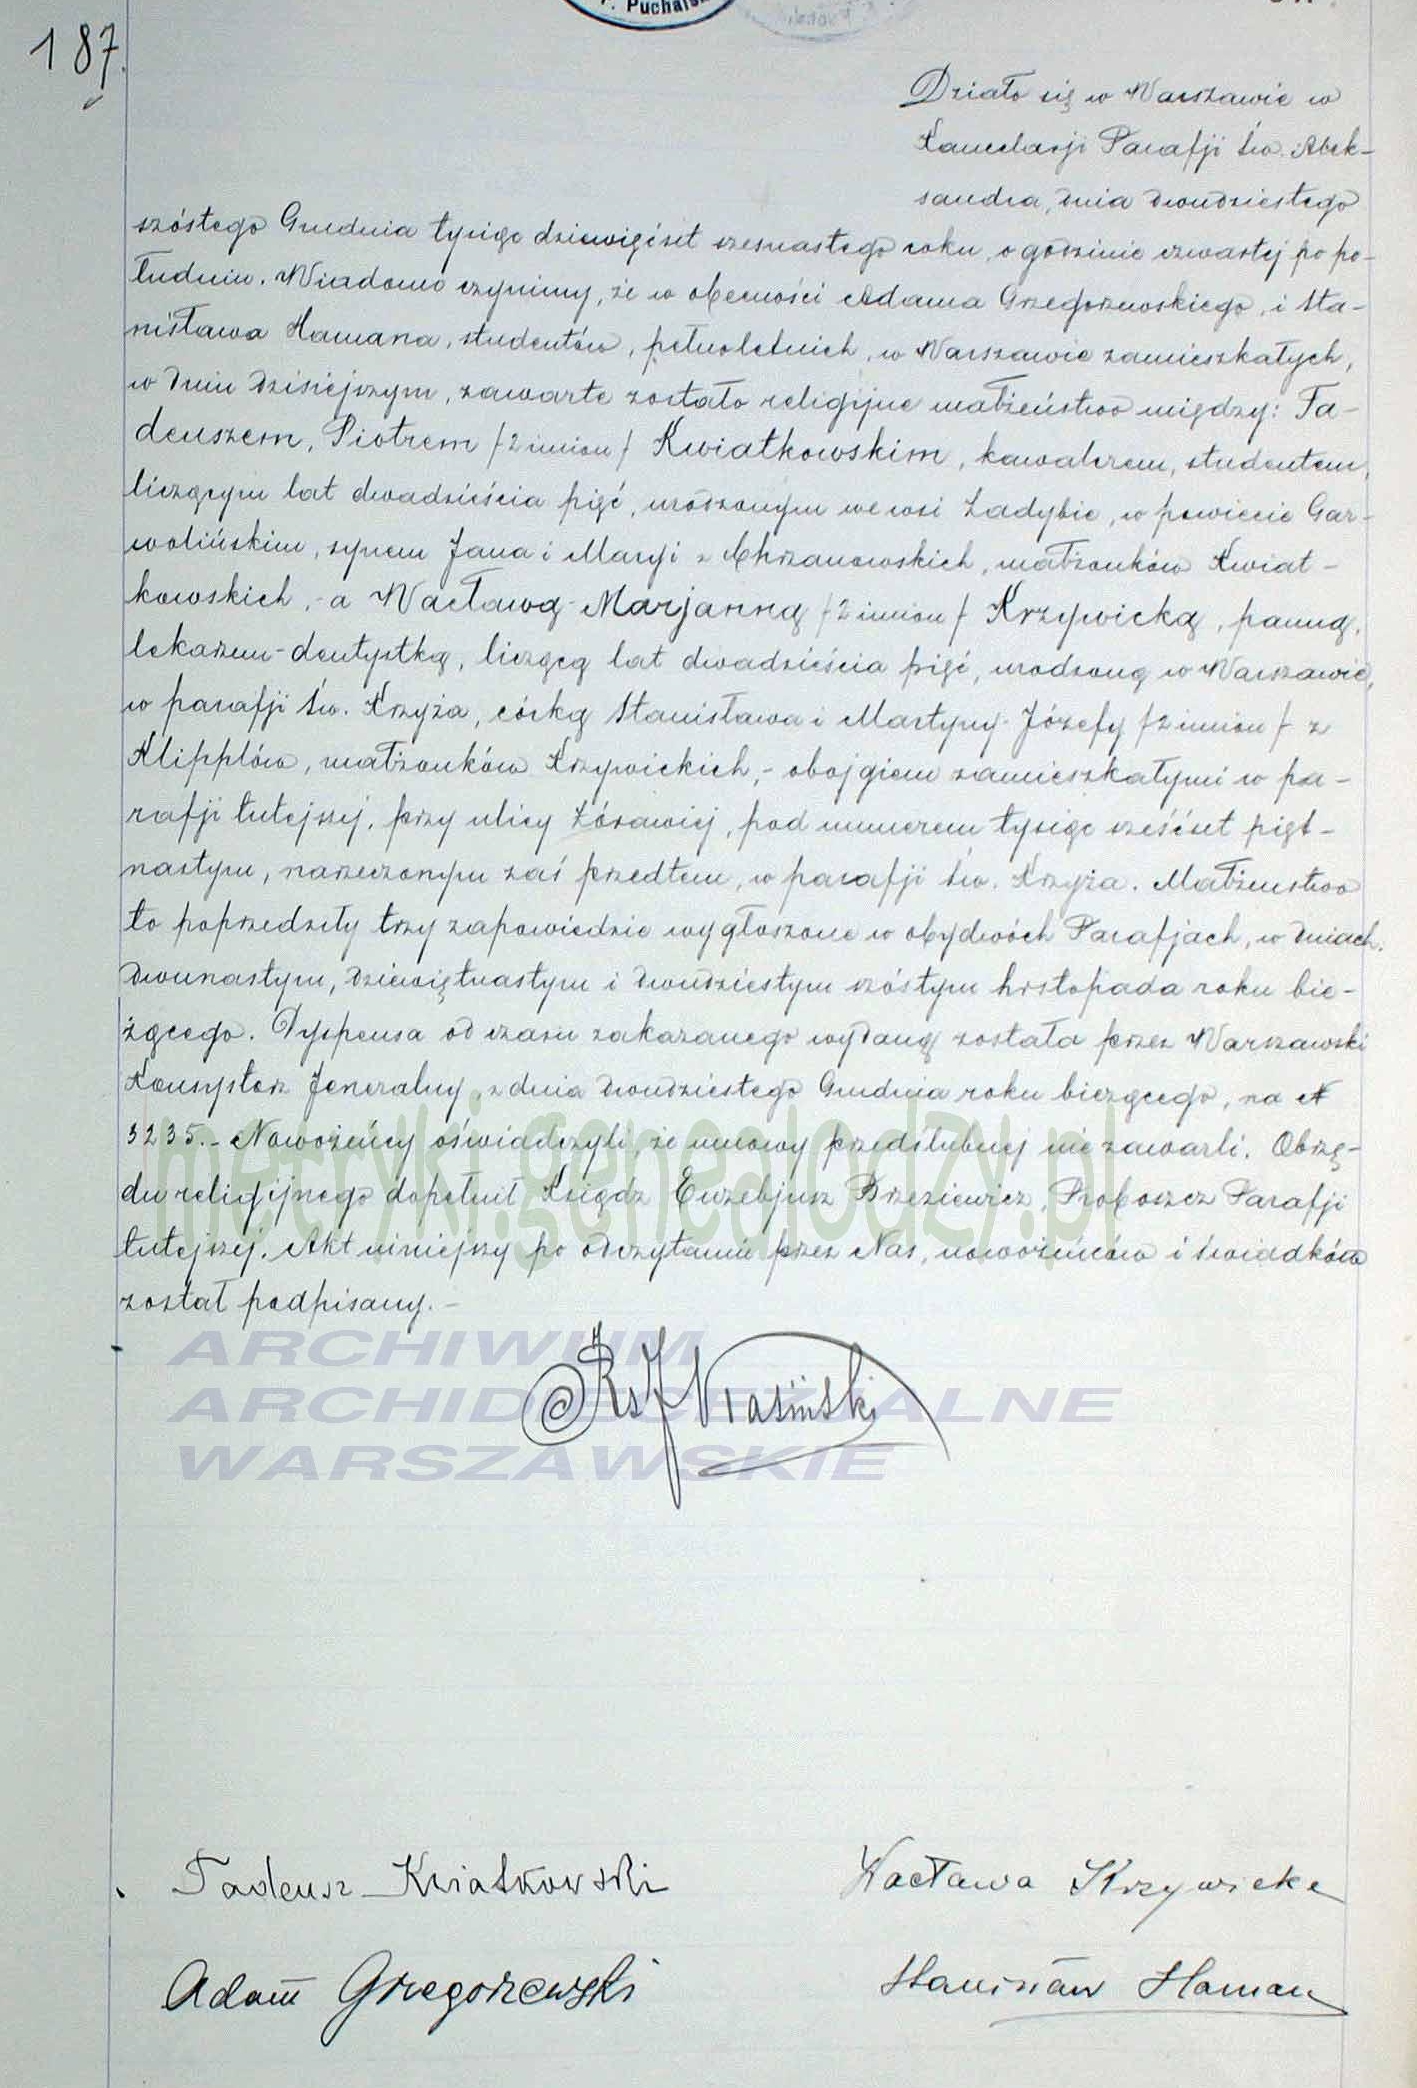 P. Puchals
187.
Działo się w Warszawie w
Kancelarji Parafji Św. Alek-
sandra, dnia dwudziestego
szóstego Grudnia tysiąc dziewięćset szesnastego roku, o godzinie czwartej po po-
łudniu. Wiadomo czynimy, że w obecności Adama Grzegorzewskiego, i Sta-
nisława Hamana, studentów, pełnoletnich, w Warszawie zamieszkałych,
w dniu dzisiejszym, zawarte zostało religijne małżeństwo między: Ta-
deuszem, Piotrem /2 imion/ Kwiatkowskim, kawalerem, studentem,
liczącym lat dwadzieścia pięć, urodzonym we wsi Zadybie, w powiecie Gar-
wolińskim, synem Jana i Maryi z Chrzanowskich, małżonków Kwiat-
kowskich, - a Wacławą Marjanną /2 imion/ Krzywicką, panną,
lekarzem-dentystką, liczącą lat dwadzieścia pięć, urodzoną w Warszawie,
w parafji Św. Krzyża, córką Stanisława i Martyny Józefy /2 imion/ z
Klipplów, małżonków Krzywickich, - obojgiem zamieszkałymi w pa-
rafji tutejszej, przy ulicy Żórawiej, pod numerem tysiąc sześćset pięt-
nastym, narzeczonym zaś przedtem, w parafji Św. Krzyża. Małżeństwo
to poprzedziły trzy zapowiedzie wygłoszone w obydwóch Parafjach, w dniach,
dwunastym, dziewiętnastym i dwudziestym szóstym listopada roku bie-
żącego. Dyspensa od czasu zakazanego wydaną została przez Warszawski
Konsystorz Jeneralny, z dnia dwudziestego Grudnia roku bieżącego, na №
3235. - Nowożeńcy oświadczyli, że umowy przedślubnej nie zawarli. Obrzę-
du religijnego dopełnił Ksiądz Euzebjusz Brzeziewicz, Proboszcz Parafji
tutejszej. Akt niniejszy po odczytaniu przez Nas, nowożeńców i świadków
został podpisany. -
metryki.genealodzy.pl
ARCHIWUM
ARCHIDIECEZJALNE
WARSZAWSKIE
Ks J
Tadeusz Kwiatkowski
Wacława Krzywicka
Adam Grzegorzewski
Stanisław Haman